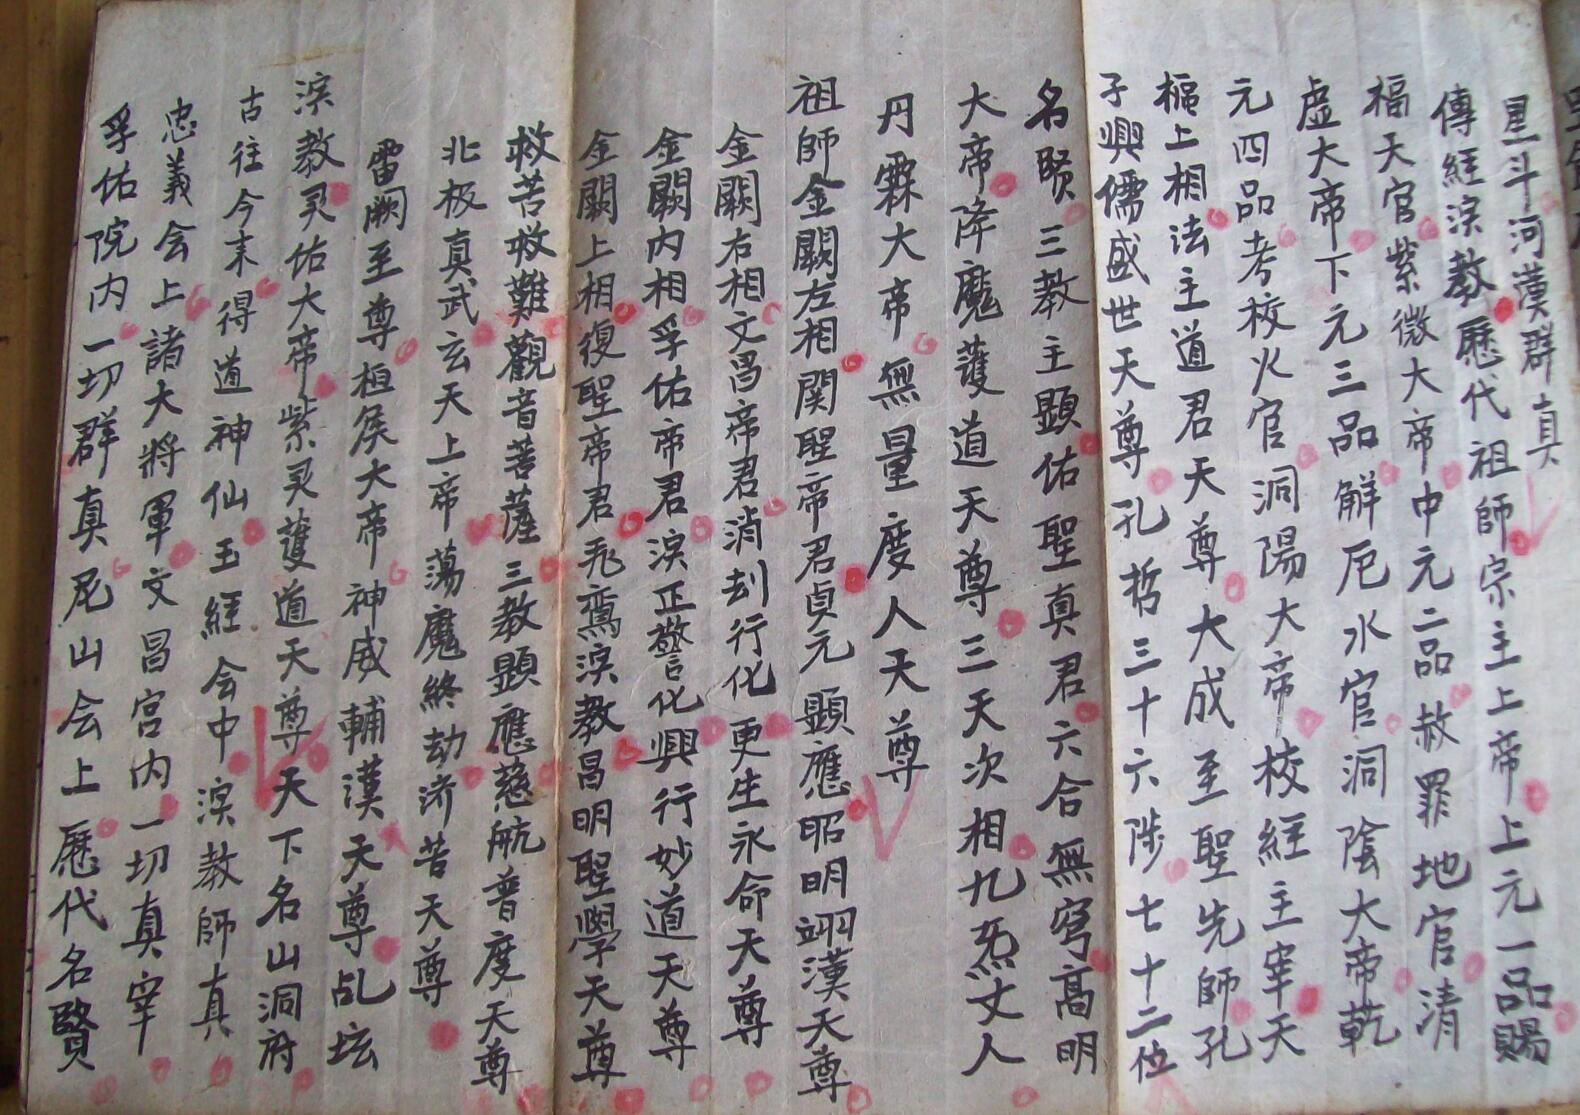 星斗河漢群真
傳経淙教歷代祖師宗主上帝上元一品賜
福天官紫微大帝中元二品赦罪地官清
虚大帝下元三品解厄水官洞陰大帝乾
元四品考校火官洞陽大帝校経主宰天
樞上相法主道君天尊大成至聖先師孔
子興儒盛世天尊孔哲三十六陟七十二位
名賢三教主顕佑聖真君六合無穹髙明
大帝降魔護道天尊三天次相九炁丈人
丹霖大帝無量度人天尊
祖師金闕左相関聖帝君貞元顕應昭明翊漢天尊
金闕右相文昌帝君消刦行化更生永命天尊
金闕内相孚佑帝君淙正警化興行妙道天尊
金闕上相復聖帝君飛鸞淙教昌明聖學天尊
救苦救難觀音菩薩三教顕應慈航普度天尊
北极真武玄天上帝蕩魔終劫济苦天尊
雷闕至尊桓侯大帝神威輔漢天尊乩坛
淙教灵佑大帝紫灵護道天尊天下名山洞府
古往今来得道神仙玉經会中淙教師真
忠義会上諸大將軍文昌宮内一切真宰
孚佑院内一切群真尼山会上歷代名賢